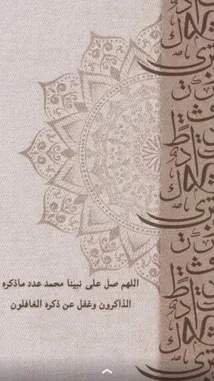 اللهم صل على نبينا محمد عدد ماذكره
الذاكرون وغفل عن ذكره الغافلون